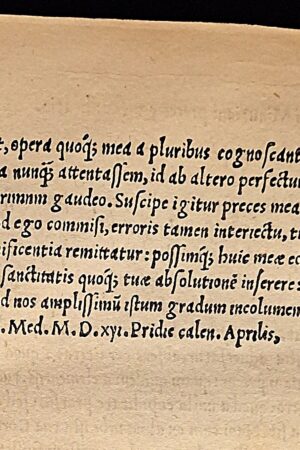 t, opera quoq; mea a pluribus cognoscant
a nunq̃; attentassem, id ab altero perfectu
rimum gaudeo. Suscipe igitur preces mea
d ego commisi, erroris tamen interiectu, ti
ificentia remittatur: possimq; huic meæ ec
sanctitatis quoq; tuæ absolutionẽ inserere:
d nos amplissimũ istum gradum incolumem
. Med. M. D. xvi. Pridie calen. Aprilis,